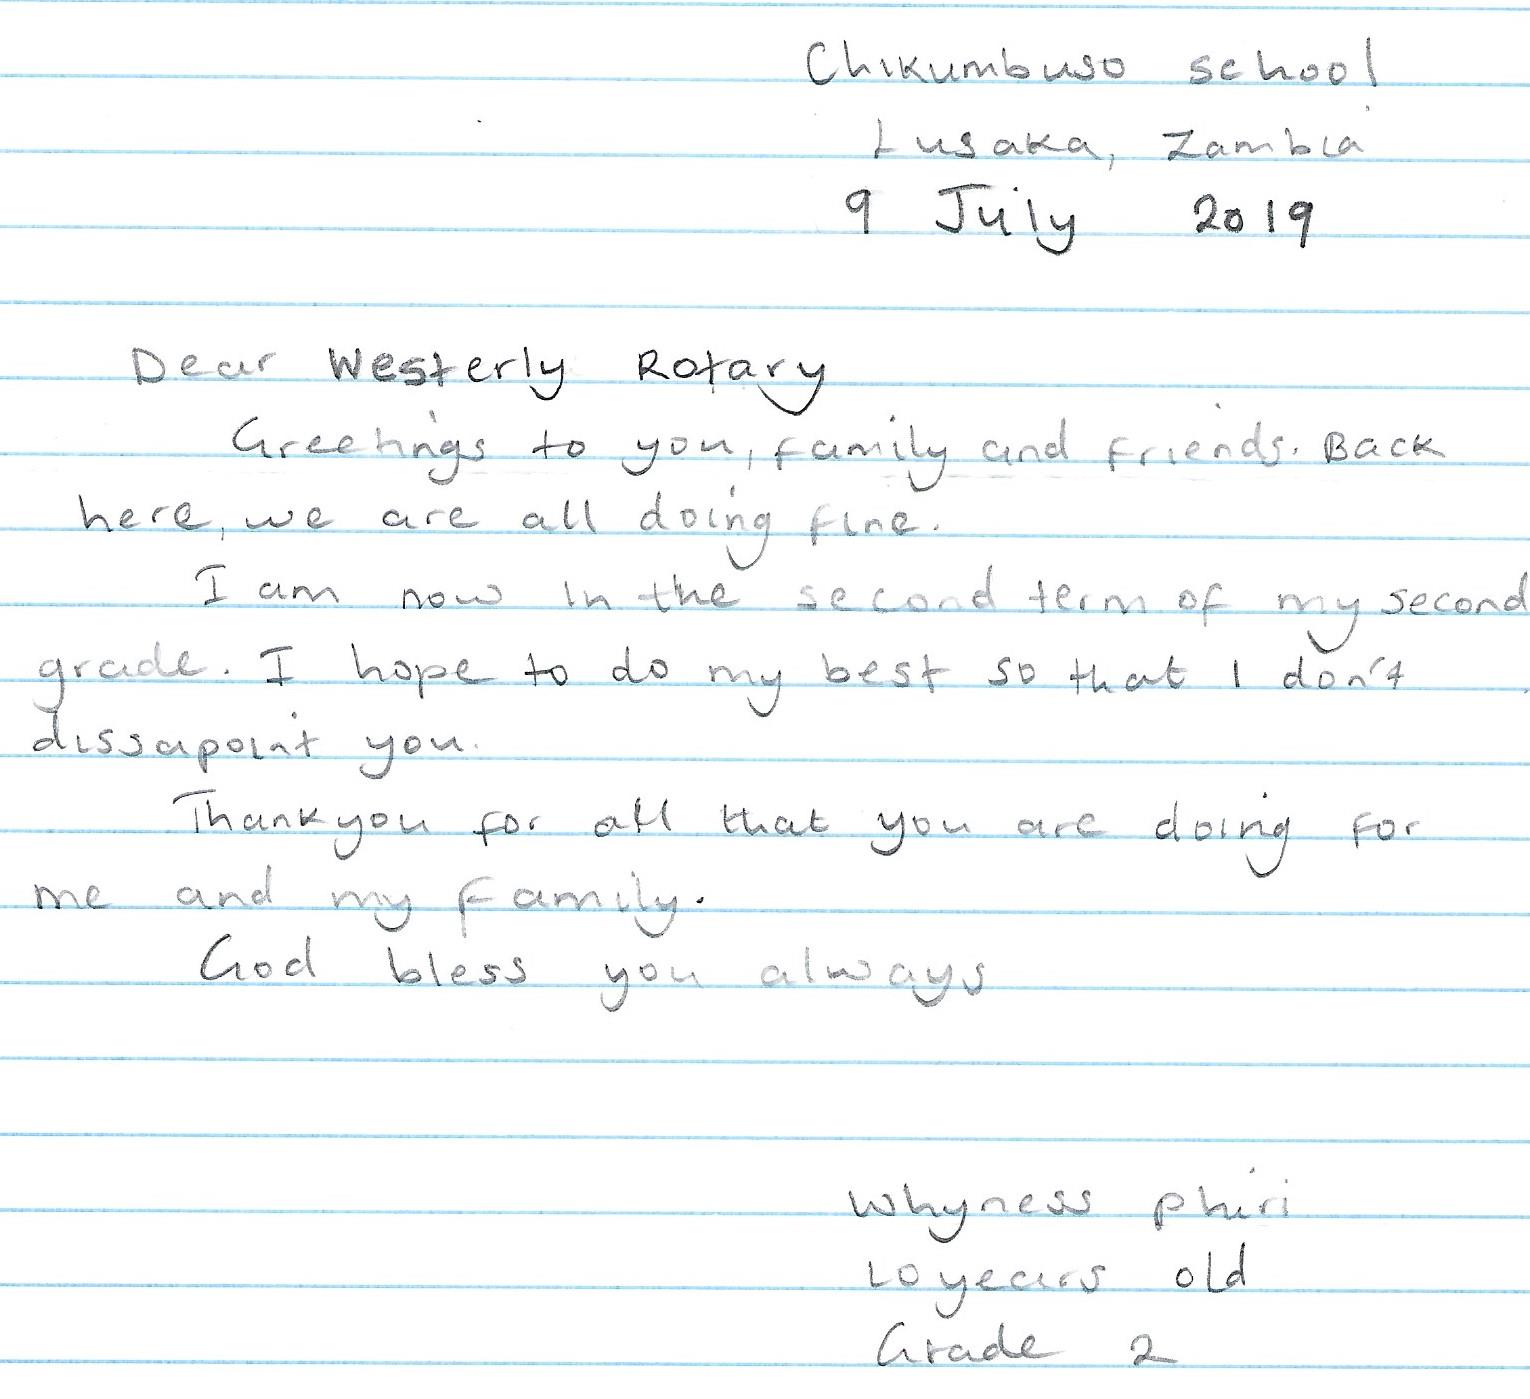 Chikumbuso school
Lusaka, Zambia
9 July 2019
Dear Westerly Rotary
Greetings to you, family and friends. Back
here, we are all doing fine.
I am now in the second term of my second
grade. I hope to do my best so that I don't
dissapoint you.
Thankyou for all that you are doing for
me and my family.
God bless you always
Whyness phiri
10 years old
Grade 2